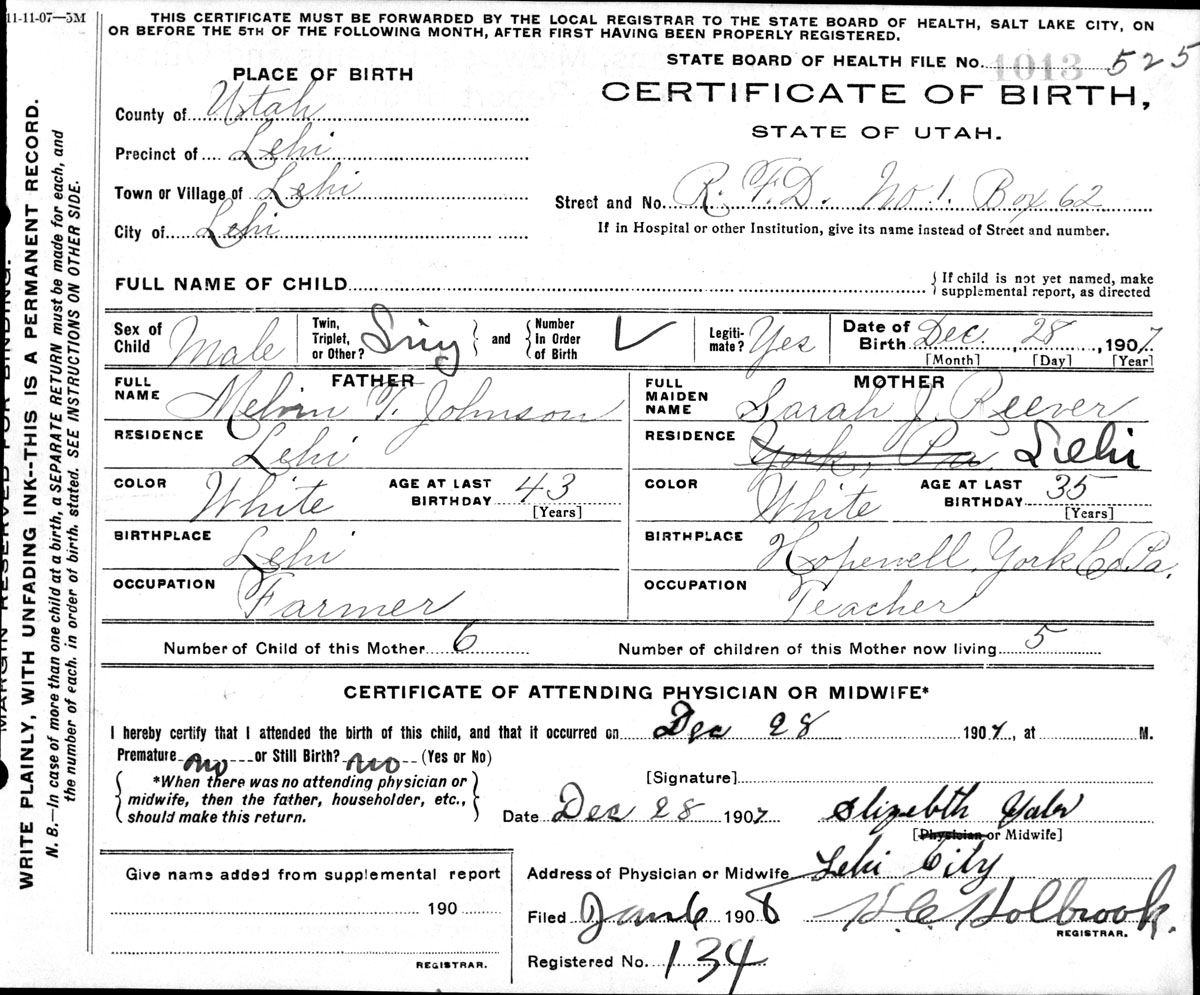 11-11-07—5M
THIS CERTIFICATE MUST BE FORWARDED BY THE LOCAL REGISTRAR TO THE STATE BOARD OF HEALTH, SALT LAKE CITY, ON
OR BEFORE THE 5TH OF THE FOLLOWING MONTH, AFTER FIRST HAVING BEEN PROPERLY REGISTERED.
STATE BOARD OF HEALTH FILE No. 1013 525
CERTIFICATE OF BIRTH,
STATE OF UTAH.
PLACE OF BIRTH
County of Utah
Precinct of Lehi
Town or Village of Lehi
City of Lehi
Street and No. R. F. D. No 1. Box 62
If in Hospital or other Institution, give its name instead of Street and number.
FULL NAME OF CHILD
If child is not yet named, make
supplemental report, as directed
Sex of Child Male
Twin, Triplet, or Other? Sing and Number In Order of Birth
Legitimate? Yes
Date of Birth Dec. 28, 1907
[Month] [Day] [Year]
FATHER
FULL NAME Melvin T. Johnson
RESIDENCE Lehi
COLOR White AGE AT LAST BIRTHDAY 43
[Years]
BIRTHPLACE Lehi
OCCUPATION Farmer
MOTHER
FULL MAIDEN NAME Sarah J. Reever
RESIDENCE York, Pa. Lehi
COLOR White AGE AT LAST BIRTHDAY 35
[Years]
BIRTHPLACE Hopewell, York Co. Pa.
OCCUPATION Teacher
Number of Child of this Mother 6 Number of children of this Mother now living 5
CERTIFICATE OF ATTENDING PHYSICIAN OR MIDWIFE*
I hereby certify that I attended the birth of this child, and that it occurred on Dec 28 1907, at M.
Premature no or Still Birth? no (Yes or No)
*When there was no attending physician or
midwife, then the father, householder, etc.,
should make this return.
[Signature]
Date Dec 28 1907 Elizebth
[Physician or Midwife]
Address of Physician or Midwife Lehi City
Filed Jan 6 1908 Holbrook.
REGISTRAR.
Registered No. 134
Give name added from supplemental report
190
REGISTRAR.
MARGIN RESERVED FOR BINDING.
WRITE PLAINLY, WITH UNFADING INK--THIS IS A PERMANENT RECORD.
N. B.—In case of more than one child at a birth, a SEPARATE RETURN must be made for each, and
the number of each, in order of birth, stated. SEE INSTRUCTIONS ON OTHER SIDE.